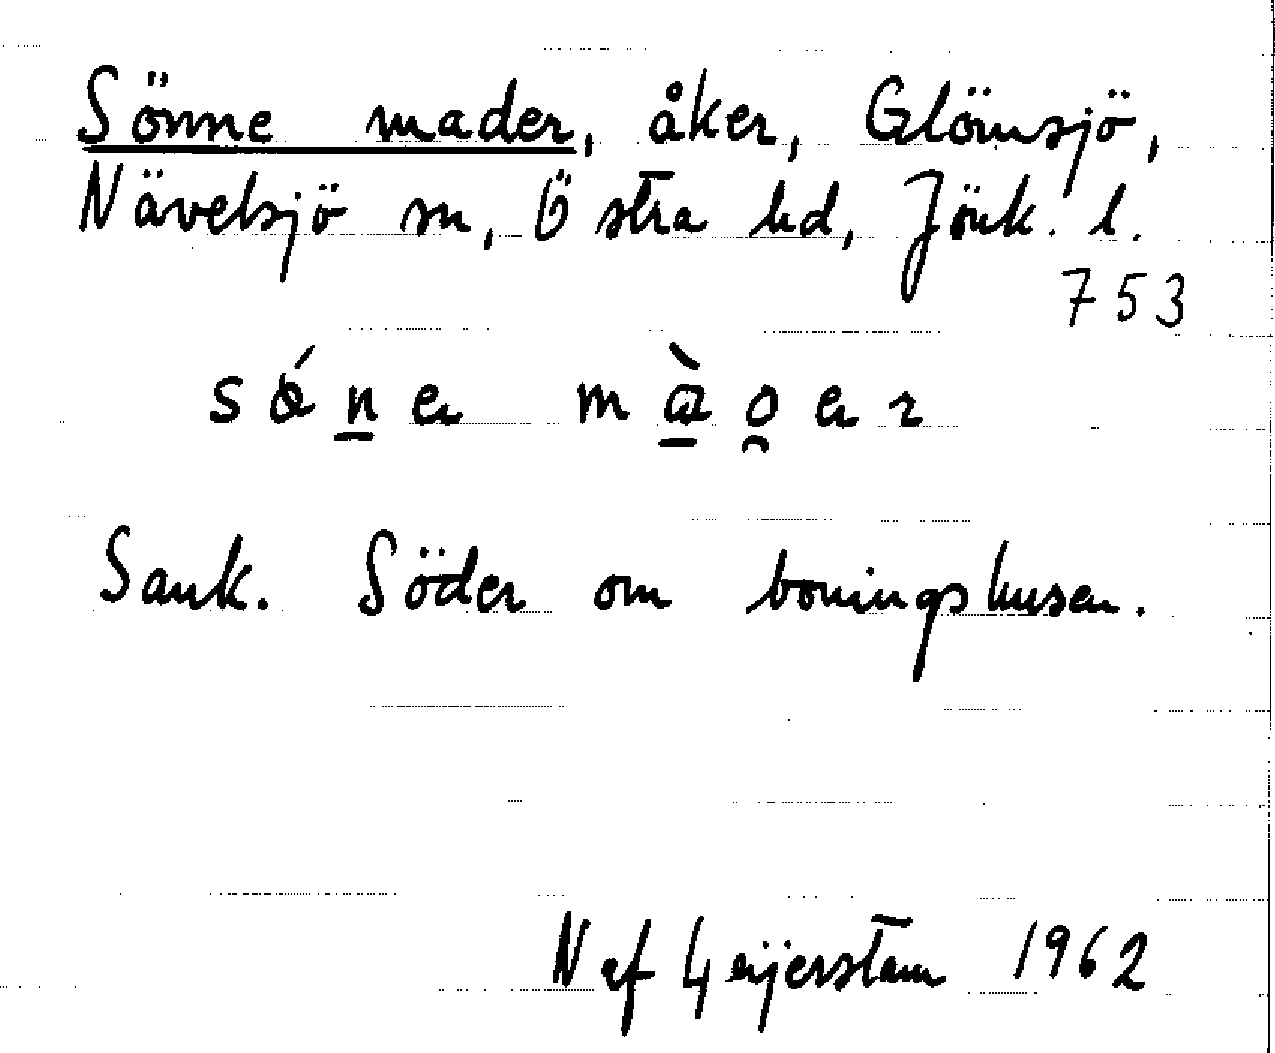 Sönne mader, åker, Glömsjö,
Nävelsjö sn, Östra hd, Jönk. l.
753
Sank. Söder om boningshusen.
N af Geijerstam 1962